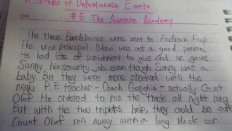 A Series of Unfortunate Events
#5 The Austere Academy
The three Baudelaires were sent to Prufrock Prep.
The vice principal Nero was not a good person.
He had lots of punishment to give and he gave
Sunny necessarily job even though Sunny was a
baby. But they were more stressed with the
new P.T teacher - Coach Genghis - actually Count
Olaf. He ordered to run the tracks all night long.
But with the two triplets help they could be safe.
Count Olaf ran away with a long black car.